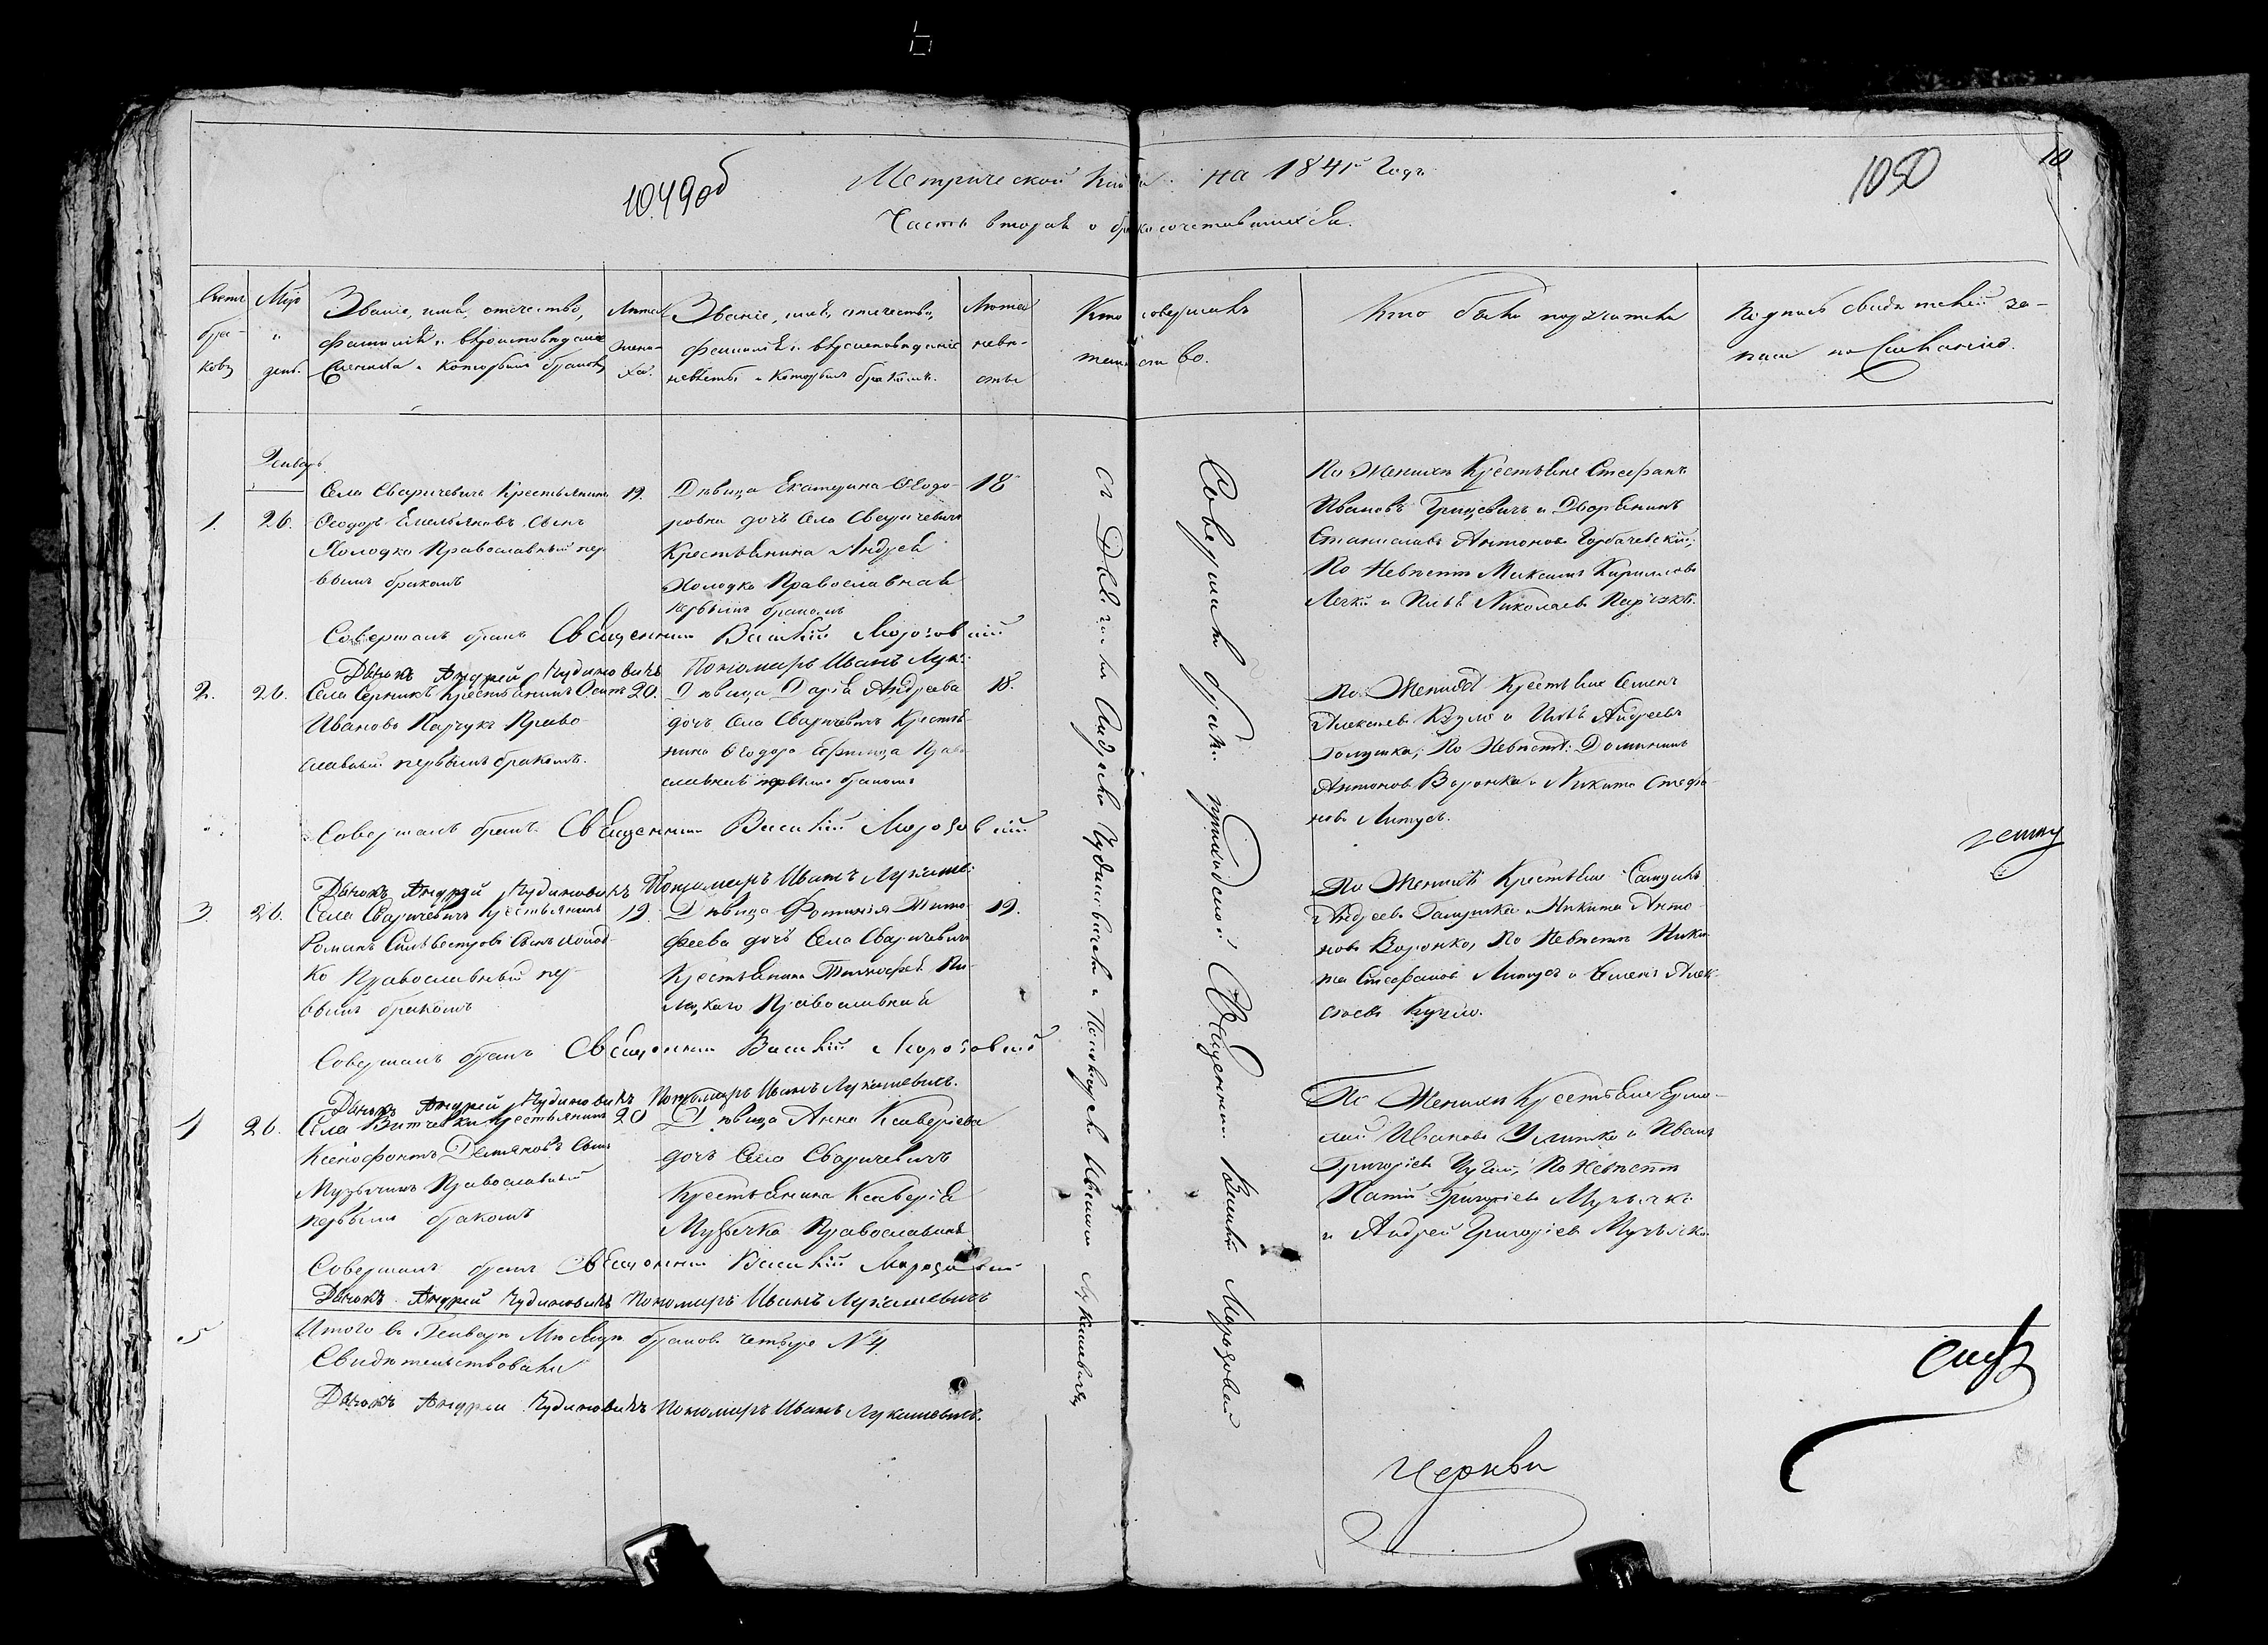 1049об
Метрической на 1841й Годъ
1050
10
Часть вторая о бракосочетавшихся.
Счетъ бра- ковъ
Мцъ и день.
Званіе, имя, отечество,
фамилія и вѣроисповѣданіе
жениха и которымъ бракомъ
Лѣта жени- ха.
Званіе, имя, отечество,
фамилія и вѣроисповѣданіе
невѣсты и которымъ бракомъ.
Лѣта невѣ- сты
Кто совершалъ
таинство.
Кто были поручители
Подпись свидѣтелей за-
писи по желанію.
Январь
1.
26.
Села Сваричевичъ Крестьянинъ
Ѳеодоръ Емельяновъ Сынъ
Холодко Православный пер
вымъ бракомъ
19.
Дѣвица Екатерина Ѳеодо-
ровна дочь Села Сваричевичъ
Крестьянина Андрея
Холодко Православная
первымъ бракомъ
18
По Женихѣ Крестьяне Стефанъ
Ивановъ Грицевичъ и Дворянинъ
Станиславъ Антоновъ Горбачевскій;
По Невѣстѣ Максимъ Кирилловъ
и Илья Николаевъ
Совершалъ бракъ Священникъ Василій Морозовичъ
Дьячокъ Андрей Чудиновичъ Пономаръ Иванъ Лук:
2.
26.
Села Серникъ Крестьянинъ Осипъ
Ивановъ Парчукъ Право-
славный первымъ бракомъ.
20.
Дѣвица Дарія Андреева
дочь Села Сваричевичъ Крестья-
нина Ѳеодора Право
славная первымъ бракомъ
18.
По Женихѣ Крестьяне Семенъ
Алексѣевъ и Илья Андреевъ
Галушка; По Невѣстѣ: Доминикъ
Антоновъ Воронко и Никита Стефа-
новъ Литусъ.
Совершалъ бракъ Священникъ Василій Морозовичъ
Дьячокъ Андрей Чудиновичъ Пономаръ Иванъ Лукаше:
3.
26.
Села Сваричевичъ Крестьянинъ
Романъ Сильвестровъ Сынъ Холод-
ко Православный пер-
вымъ бракомъ
19.
Дѣвица Фотинія Тимо
феева дочь Села Сваричевичъ
Крестьянина Тимофея
Православная
19.
По Женихѣ Крестьяне
Андреевъ Галушка и Никита Анто-
новъ Воронко, По Невѣстѣ Ники-
та Стефановъ Литусъ и Семенъ Алек-
сѣевъ
Совершалъ бракъ Священникъ Василій Морозовичъ
Дьячокъ Андрей Чудиновичъ Пономаръ Иванъ Лукашевичъ.
26.
Села Витчевки Крестьянинъ
Ксенофонтъ Демяновъ Сынъ
Музычинъ Православный
первымъ бракомъ
20
Дѣвица Анна Ксаверіева
дочь Села Сваричевичъ
Крестьянина Ксаверія
Музычка Православная
По Женихѣ Крестьяне Ермо-
лай Ивановъ и Иванъ
Григоріевъ По Невѣстѣ
Григоріевъ Музычка
и Андрей Григоріевъ Музычка
Совершалъ бракъ Священникъ Василій Морозовичъ
Дьячокъ Андрей Чудиновичъ Пономаръ Иванъ Лукашевичъ
5
Итого въ Генварѣ Мѣсяцѣ браковъ четыре N 4
Свидѣтельствовали
Дьячокъ Андрей Чудиновичъ Пономаръ Иванъ Лукашевичъ.
Съ Дьячкомъ Андреемъ Чудиновичемъ и Пономаремъ Иваномъ Лукашевичемъ
Совершалъ бракъ приходской Священникъ Василій Морозовичъ
Церкви